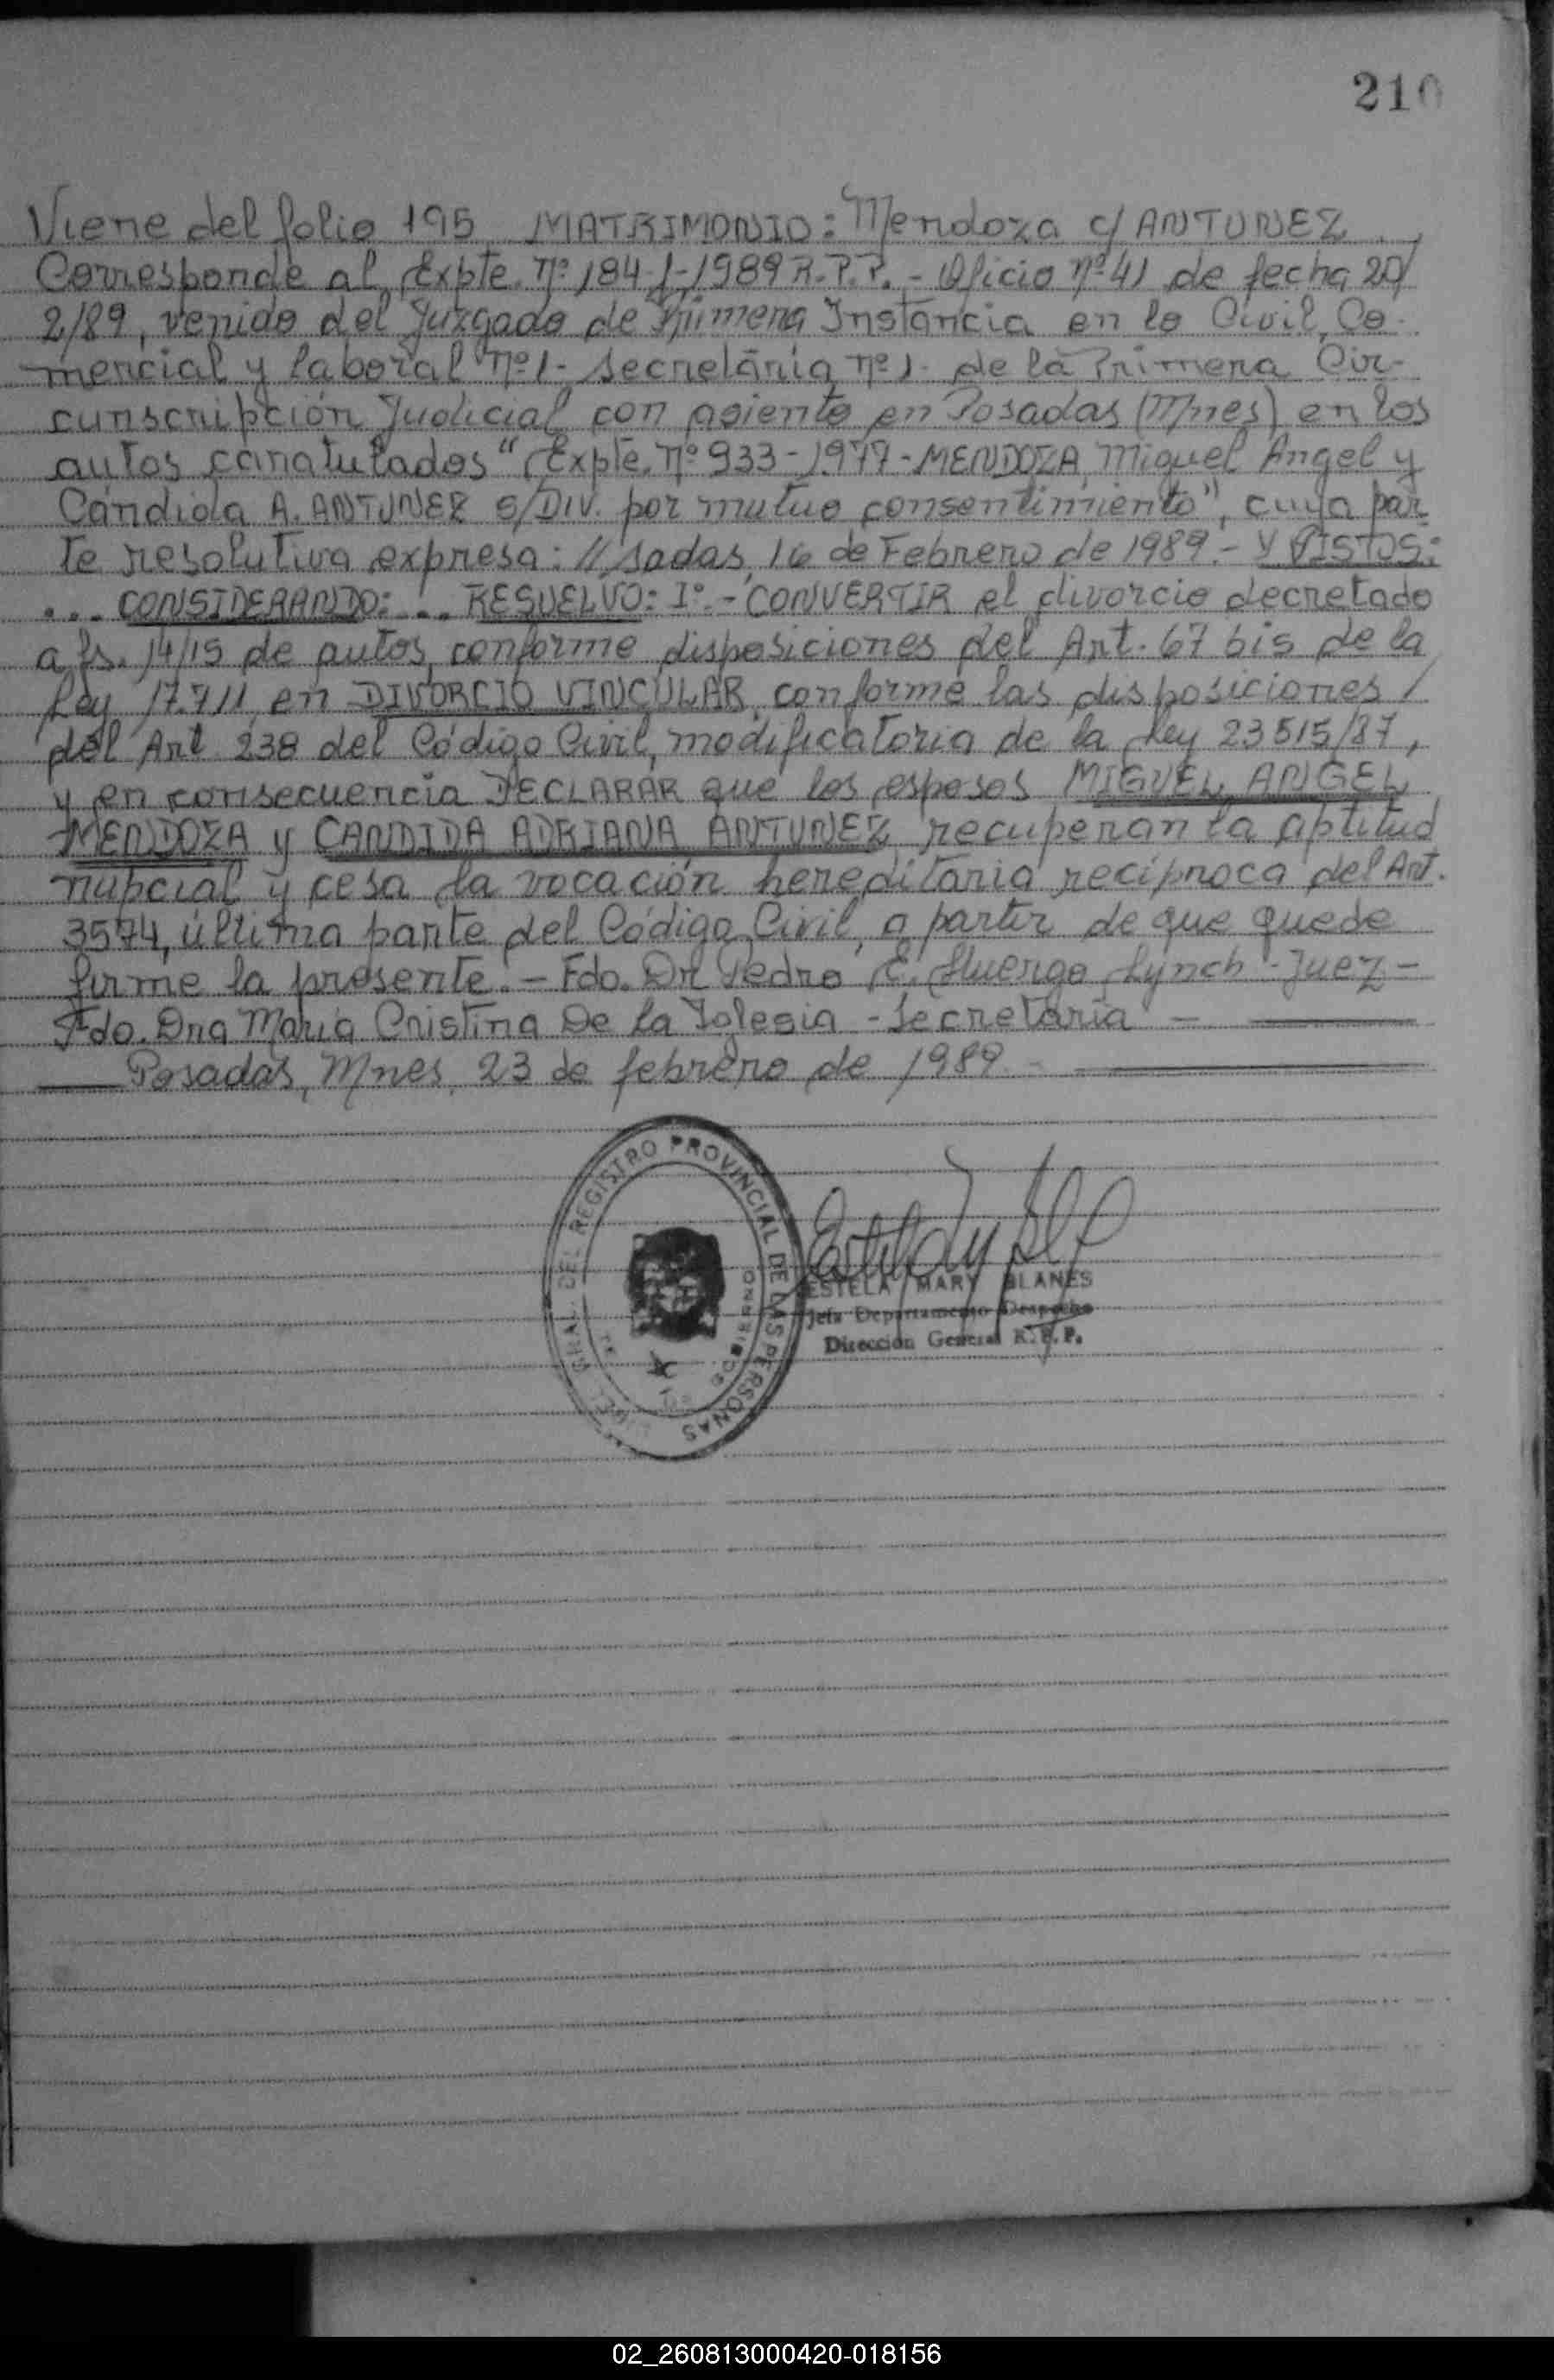 210
Viene del folio 195 MATRIMONIO: Mendoza c/ ANTUNEZ
Corresponde al Expte. nº 184-J-1989 R.P.P. - Oficio nº 41 de fecha 20/
2/89, venido del Juzgado de Primera Instancia en lo Civil, Co-
mercial y laboral nº 1- Secretaría nº 1- de la Primera Cir-
cunscripción Judicial con asiento en Posadas (Mnes) en los
autos caratulados "Expte. nº 933-1977-MENDOZA, Miguel Angel y
Cándida A. ANTUNEZ S/DIV. por mutuo consentimiento", cuya par-
te resolutiva expresa: //sadas, 16 de Febrero de 1989.- Y VISTOS:
... CONSIDERANDO: ... RESUELVO: Iº.- CONVERTIR el divorcio decretado
a fs. 14/15 de autos, conforme disposiciones del Art. 67 bis de la
Ley 17.711, en DIVORCIO VINCULAR, conforme las disposiciones /
del Art 238 del Código Civil, modificatoria de la Ley 23515/87,
y en consecuencia DECLARAR que los esposos MIGUEL ANGEL
MENDOZA y CANDIDA ADRIANA ANTUNEZ recuperan la aptitud
nupcial y cesa la vocación hereditaria recíproca del Art.
3574, última parte del Código Civil, a partir de que quede
firme la presente. - Fdo. Dr Pedro E. Luengo Lynch - Juez -
Fdo. Dra María Cristina De la Iglesia - Secretaria -
Posadas, Mnes, 23 de febrero de 1989 -
DEL REGISTRO PROVINCIAL DE LAS PERSONAS
ESTELA MARY BLANES
Jefa Departamento Despacho
Dirección General R.P.P.
02_260813000420-018156